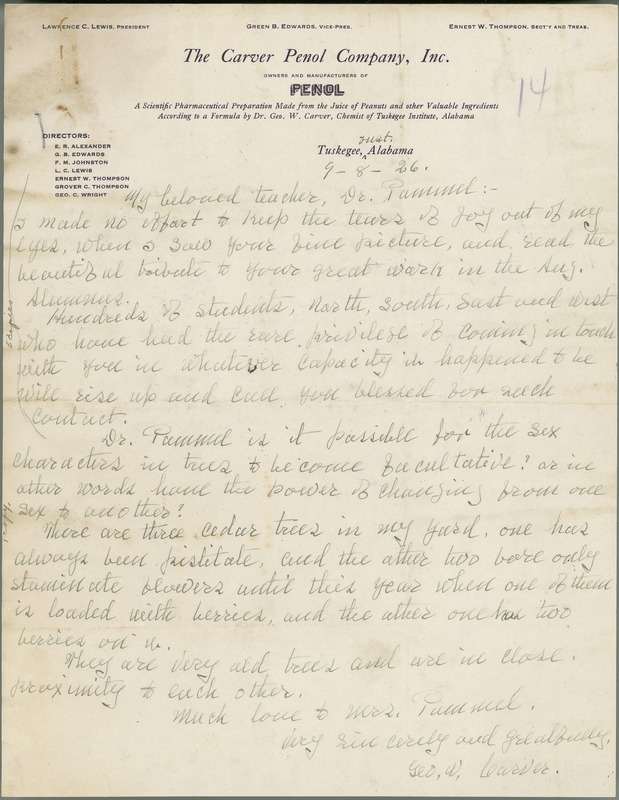 LAWRENCE C. LEWIS, PRESIDENT GREEN B. EDWARDS, VICE-PRES. ERNEST W. THOMPSON, SECT'Y AND TREAS.
The Carver Penol Company, Inc.
OWNERS AND MANUFACTURERS OF
PENOL
14
A Scientific Pharmaceutical Preparation Made from the Juice of Peanuts and other Valuable Ingredients
According to a Formula by Dr. Geo. W. Carver, Chemist of Tuskegee Institute, Alabama
DIRECTORS:
E. R. ALEXANDER
G. B. EDWARDS
F. M. JOHNSTON
L. C. LEWIS
ERNEST W. THOMPSON
GROVER C. THOMPSON
GEO. C. WRIGHT
Inst.
Tuskegee, Alabama
9-8-26.
My beloved teacher, Dr. Pammel:-
I made no effort to keep the tears of joy out of my
eyes, when I saw your fine picture, and read the
beautiful tribute to your great work in the Aug.
Alumnus.
Hundreds of students, North, South, East and West
who have had the rare privilege of coming in touch
with you in whatever capacity it happened to be
will rise up and call you blessed for such
contact.
Dr. Pammel is it possible for the sex
characters in trees to become facultative? or in
other words have the power of changing from one
sex to another?
There are three cedar trees in my yard, one has
always been pistilate, and the other two bore only
staminate flowers until this year when one of them
is loaded with berries, and the other one has two
berries on it.
They are very old trees and are in close
proximity to each other.
Much love to Mrs. Pammel.
Very sincerely and gratefully,
Geo. W. Carver.
5 copies
1 copy.